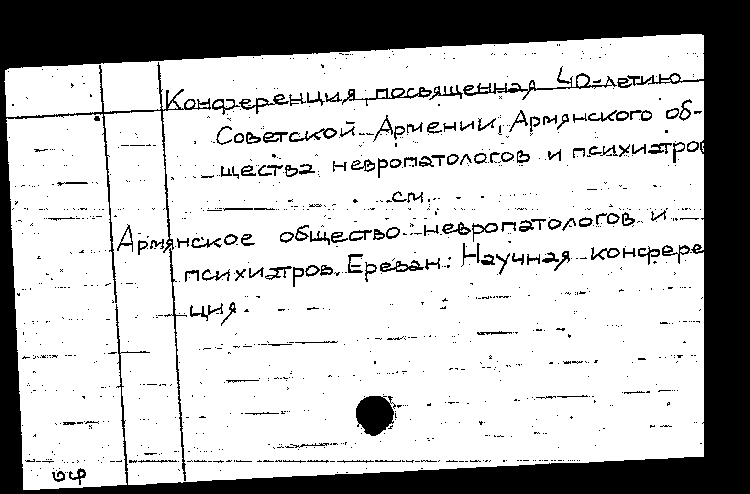 Конференция, посвященная 40-летию
Советской Армении, Армянского об-
щества невропатологов и психиатров
см.
Армянское общество невропатологов и
психиатров. Ереван. Научная конферен
ция.